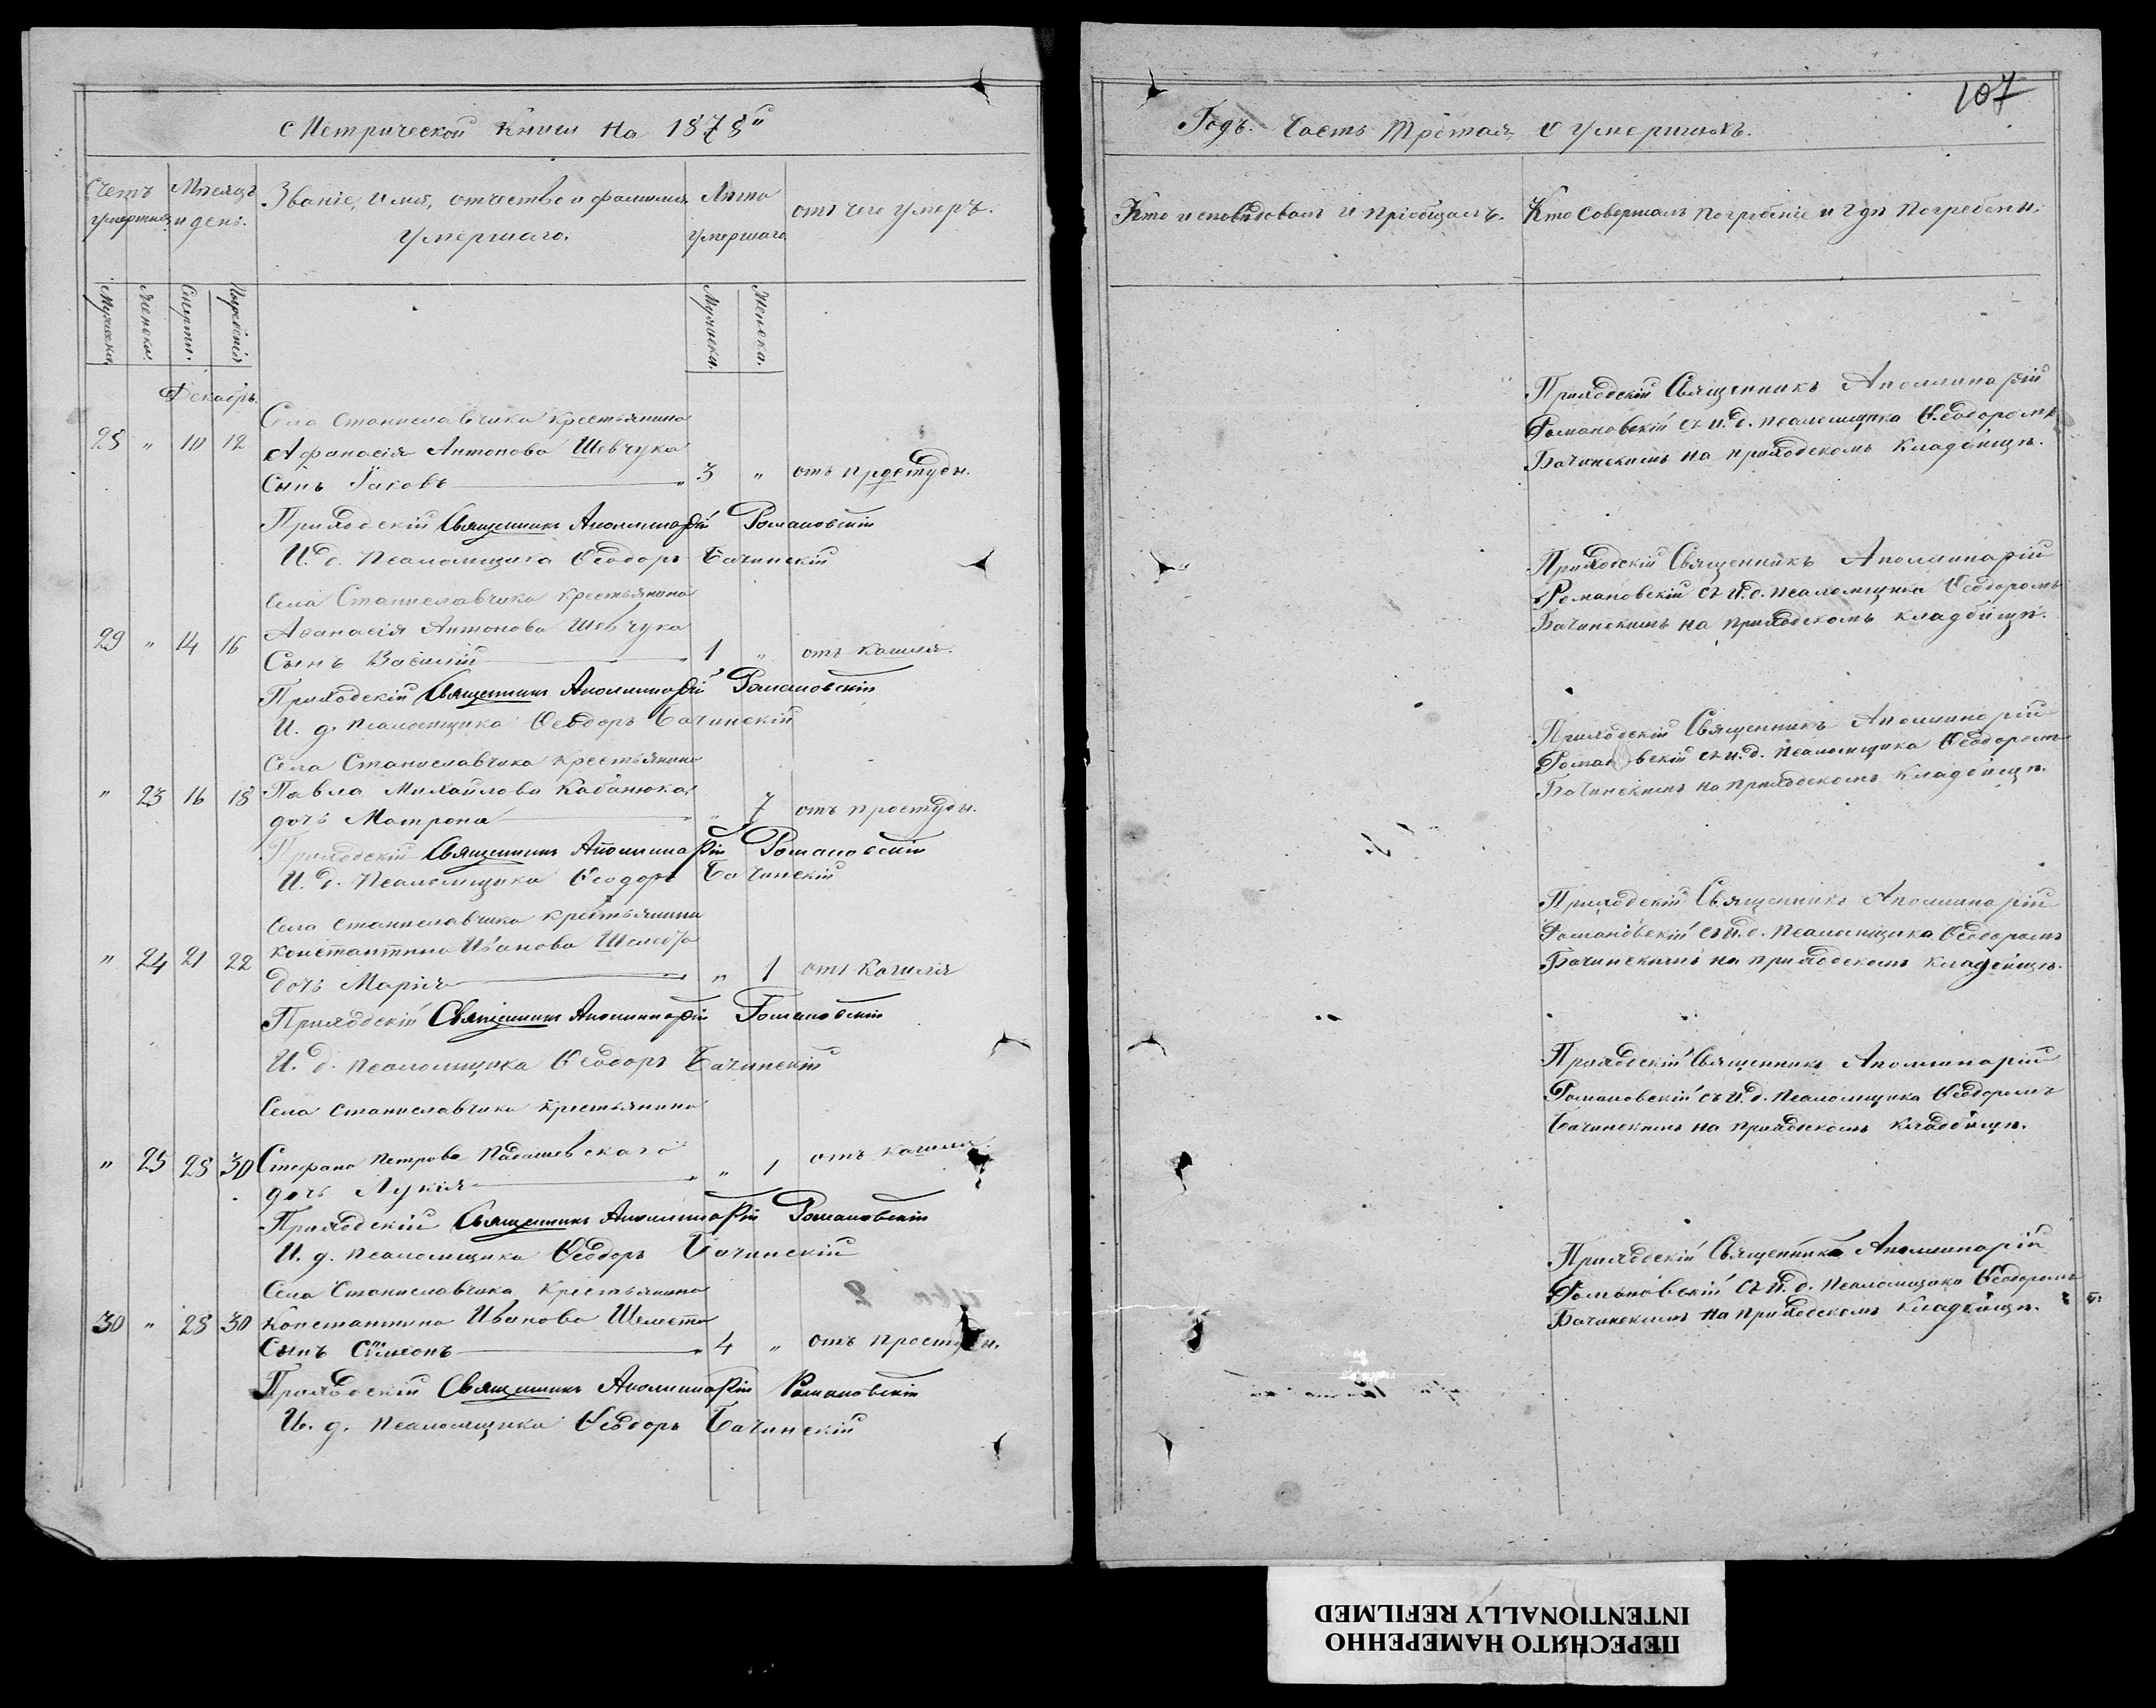 Метрической Книги на 1878
Счетъ умершихъ
Мѣсяцъ и день.
Званіе, имя, отчество и фамилия умершаго.
Лѣта умершаго.
отъ чего умеръ.
Мужеска.
Женска.
Смерти.
Погребенія
Мужеска.
Женска.
Декабрь.
Села Станиславчика крестьянина
28 " 10 12 Афанасія Антонова Шевчука
Сынъ Іаковъ 3 " отъ простуды.
Приходскій Священникъ Аполлинарій Романовскій
И. д. Псаломщика Ѳеодоръ Бачинскій
Села Станиславчика крестьянина
29 " 14 16 Аѳанасія Антонова Шевчука
Сынъ Василій 1 " отъ кашля.
Приходскій Священникъ Аполлинарій Романовскій
И. д. псаломщика Ѳеодоръ Бачинскій
Села Станиславчика Крестьянина
" 23 16 18 Павла Михайлова Кабанюка
дочь Матрона " 7 отъ простуды.
Приходскій Священникъ Аполлинарій Романовскій
И. д. Псаломщика Ѳеодоръ Бачинскій
Села Станиславчика крестьянина
" 24 21 22 Константина Иванова
дочь Марія " 1 отъ Кашля
Приходскій Священникъ Аполлинарій Романовскій
И. д. псаломщика Ѳеодоръ Бачинскій
Села Станиславчика крестьянина
" 25 28 30 Стефана Петрова
дочь Лукія " 1 отъ кашля.
Приходскій Священникъ Аполлинарій Романовскій
И. д. псаломщика Ѳеодоръ Бачинскій
Села Станиславчика Крестьянина
30 " 28 30 Константина Иванова
Сынъ Симеонъ 4 " отъ простуды.
Приходскій Священникъ Аполлинарій Романовскій
И. д. псаломщика Ѳеодоръ Бачинскій
107
Годъ. Часть Третая, о умершихъ.
Кто исповѣдовалъ и пріобщалъ.
Кто совершалъ погребеніе и гдѣ погребены.
Приходскій Священникъ Аполлинарій
Романовскій съ и. д. псаломщика Ѳеодоромъ
Бачинскимъ на приходскомъ кладбищѣ.
Приходскій Священникъ Аполлинарій
Романовскій съ и. д. псаломщика Ѳеодоромъ
Бачинскимъ на приходскомъ кладбищѣ.
Приходскій Священникъ Аполлинарій
Романовскій съ и. д. псаломщика Ѳеодоромъ
Бачинскимъ на приходскомъ кладбищѣ.
Приходскій Священникъ Аполлинарій
Романовскій съ и. д. псаломщика Ѳеодоромъ
Бачинскимъ на приходскомъ кладбищѣ.
Приходскій Священникъ Аполлинарій
Романовскій съ и. д. псаломщика Ѳеодоромъ
Бачинскимъ на приходскомъ кладбищѣ.
Приходскій Священникъ Аполлинарій
Романовскій съ и. д. псаломщика Ѳеодоромъ
Бачинскимъ на приходскомъ кладбищѣ.
ПЕРЕСНЯТО НАМЕРЕННО
INTENTIONALLY REFILMED